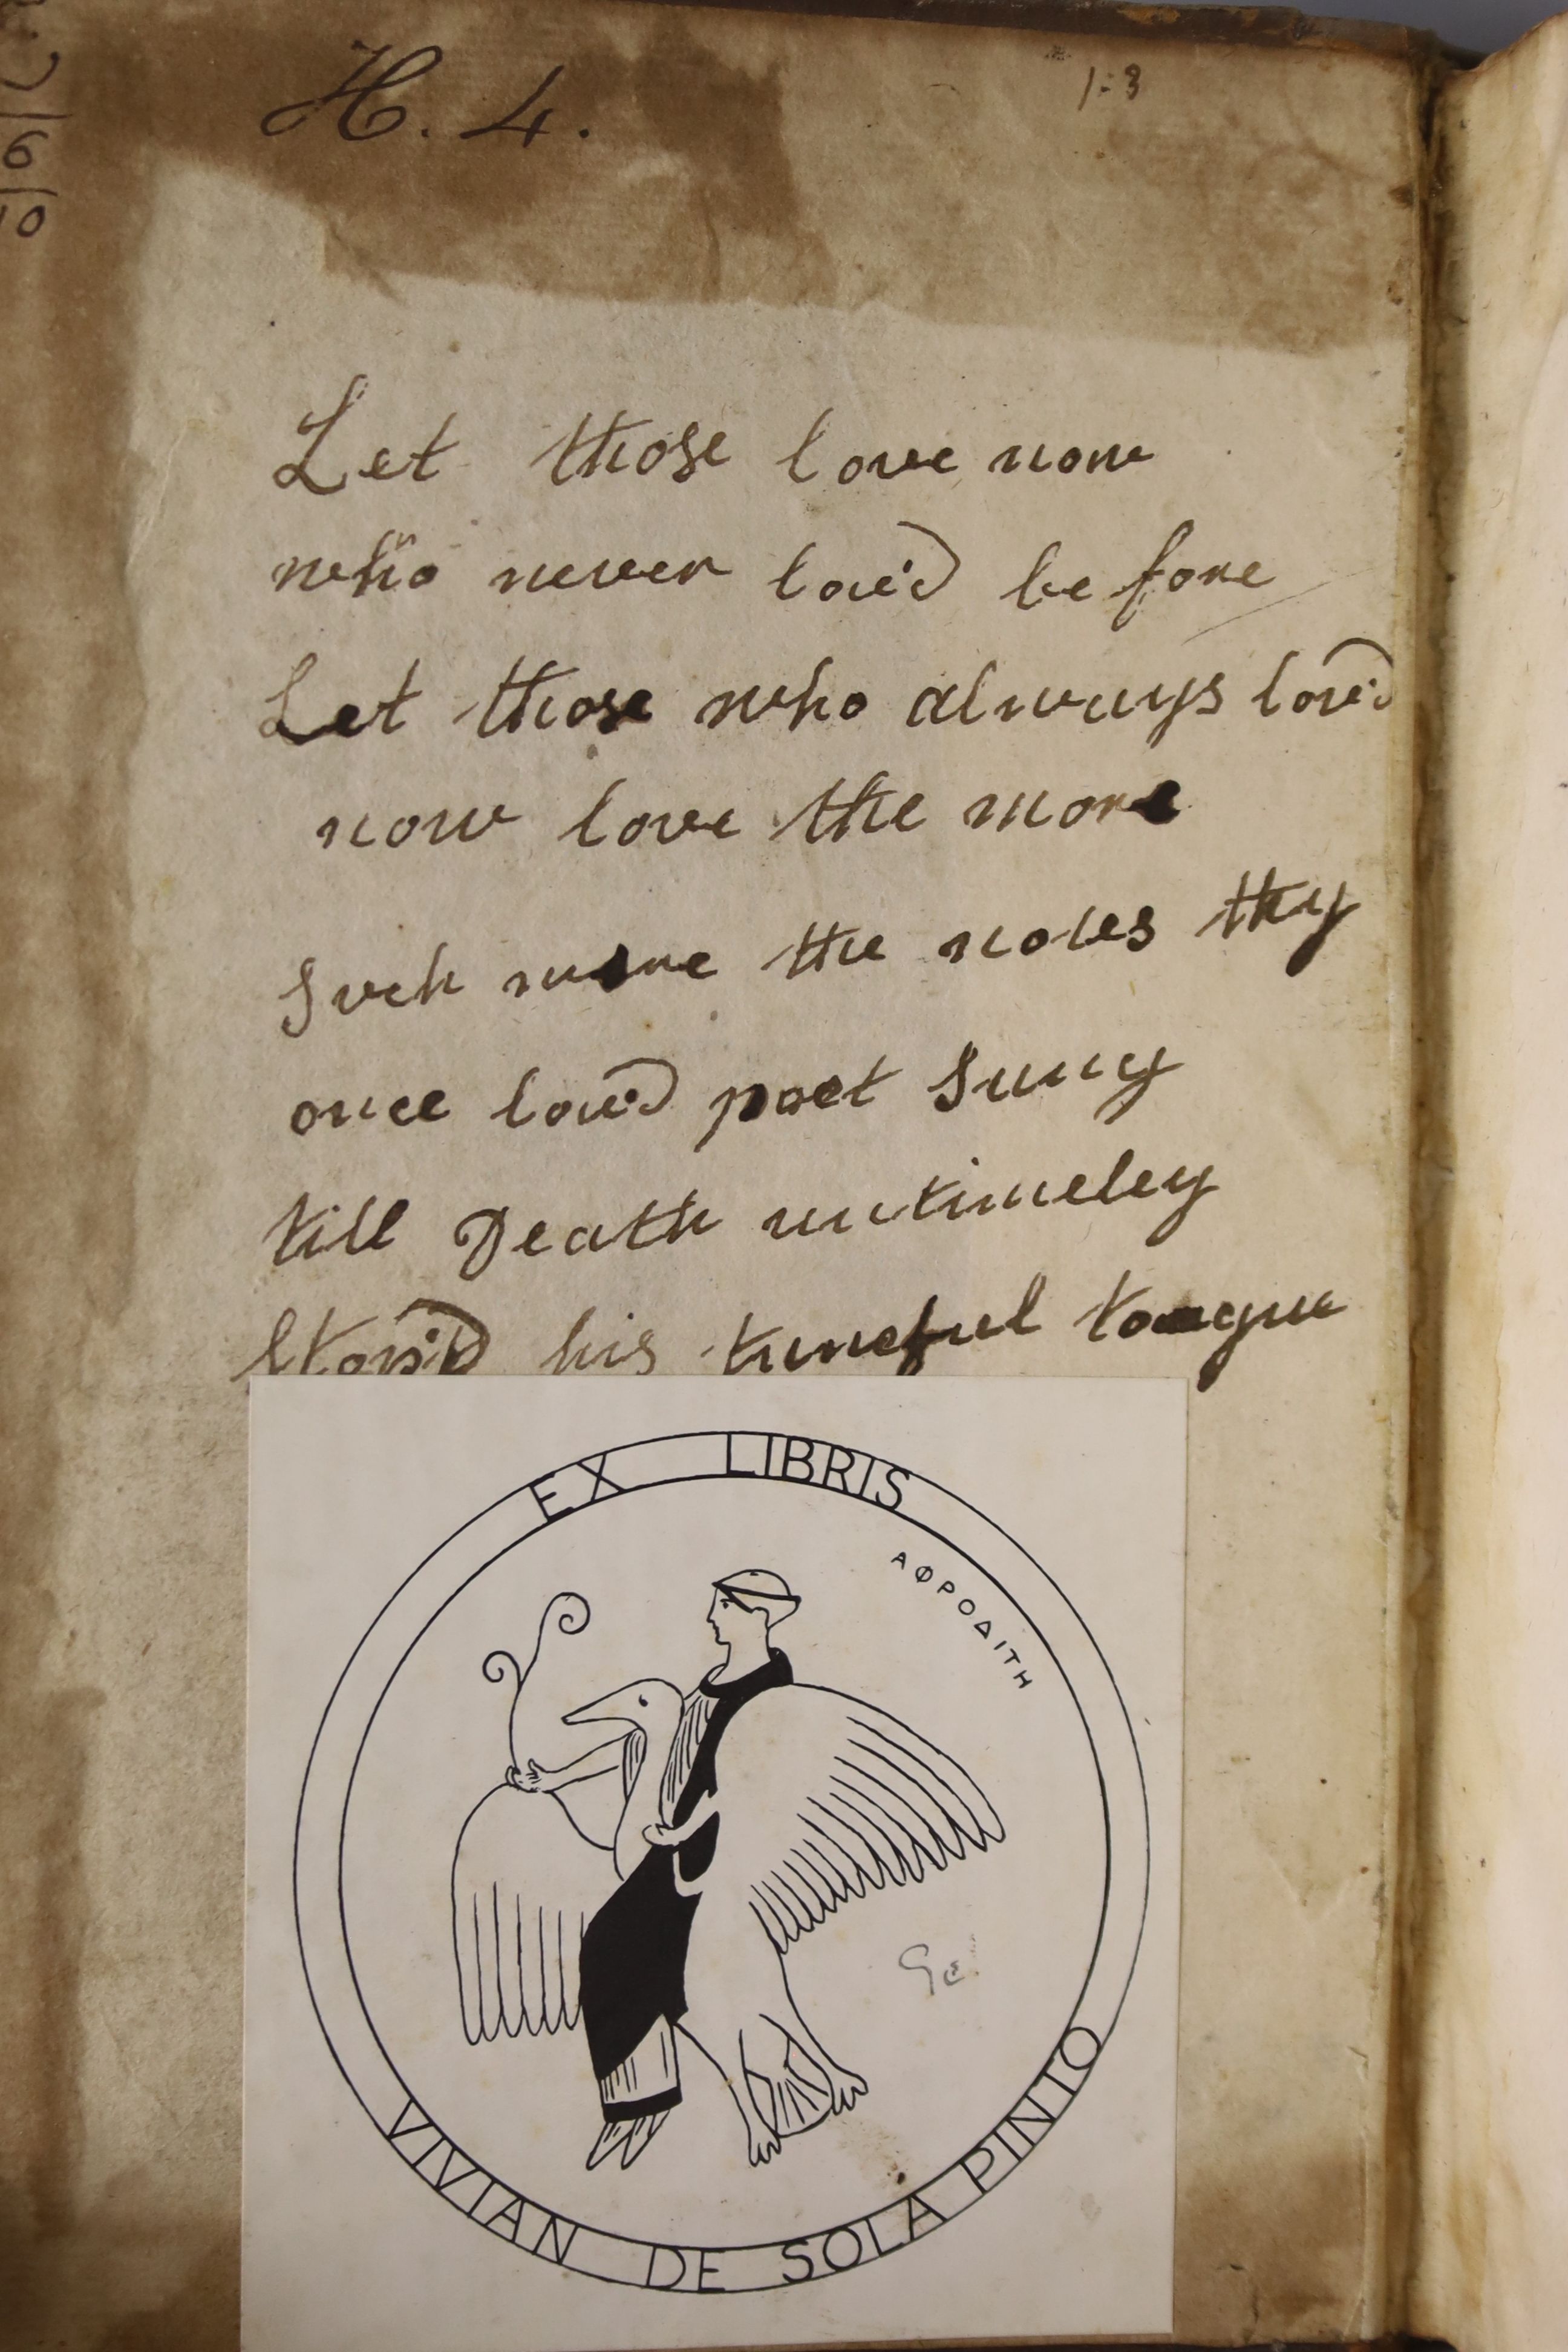 H. 4.
1:3
Let those love now
who never lov'd before
Let those who always lov'd
now love the more
Such were the notes thy
once lov'd poet sung
till Death untimeley
stop'd his tuneful tongue
EX LIBRIS
ΑΦΡΟΔΙΤΗ
VIVIAN DE SOLA PINTO